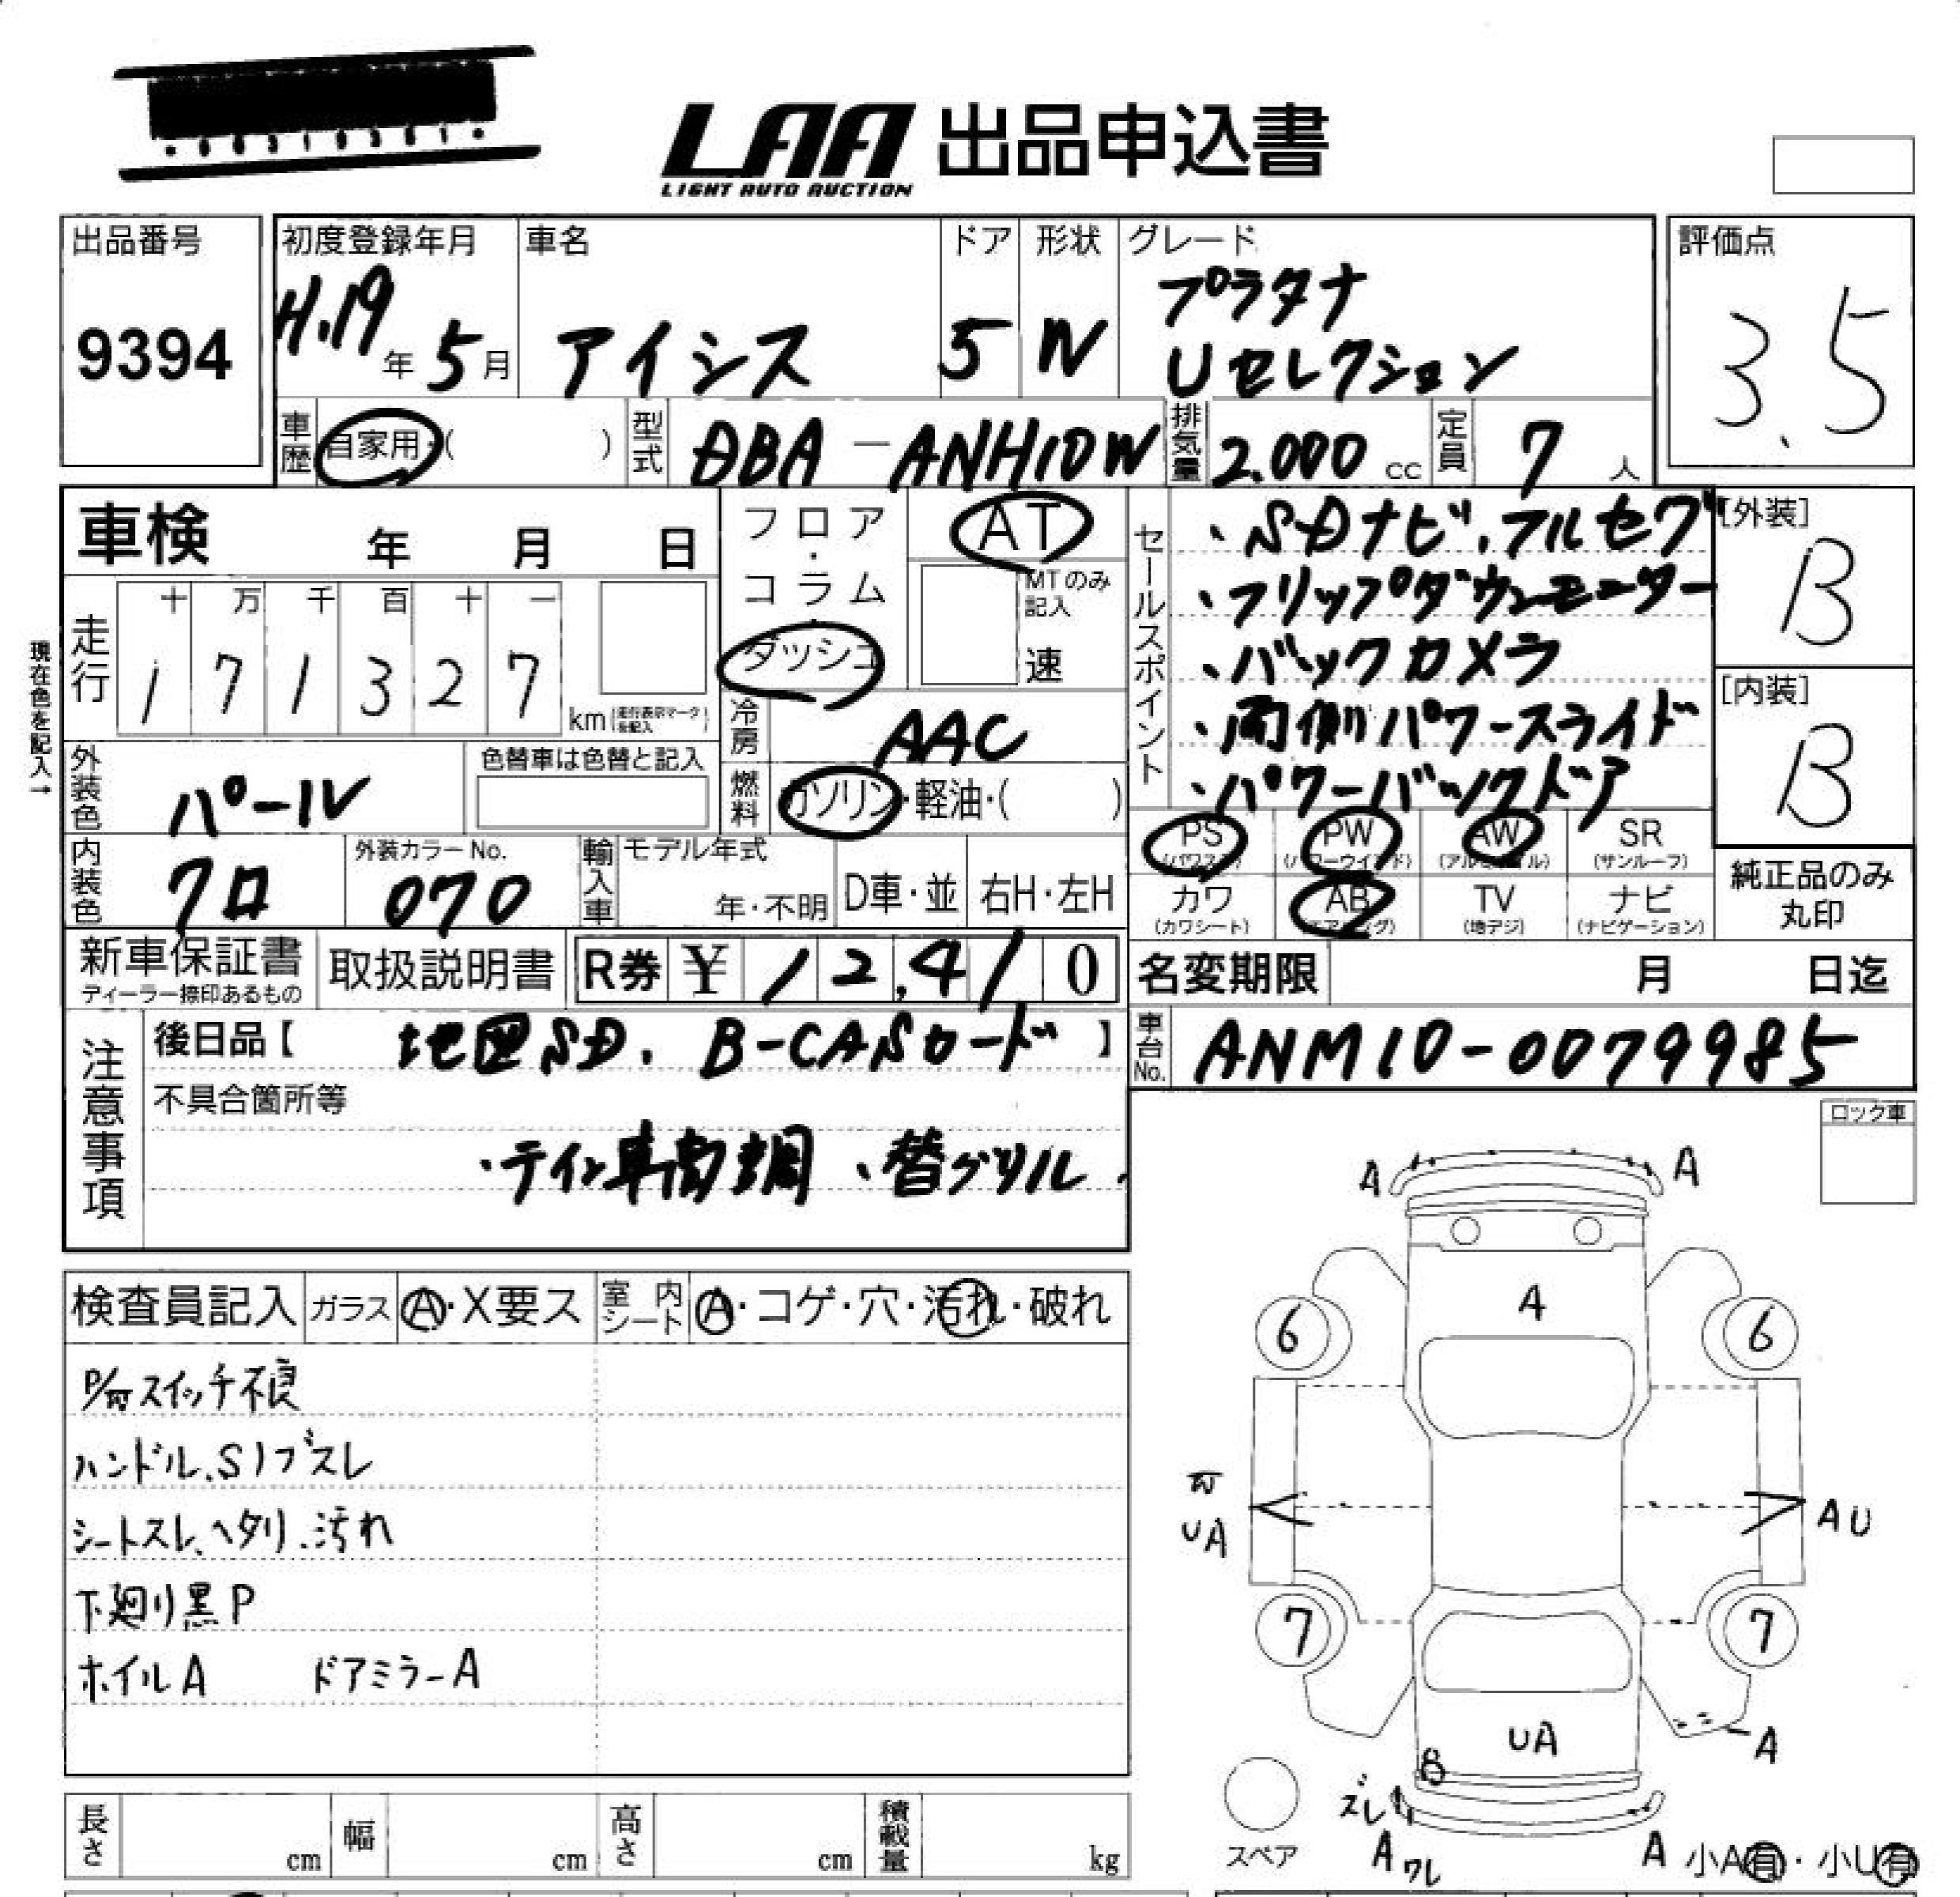 LAA 出品申込書
LIGHT AUTO AUCTION
出品番号
9394
初度登録年月
H.19年 5月
車名
アイシス
ドア
5
形状
W
グレード
プラタナ
Uセレクション
評価点
3.5
車歴 自家用・( )
型式 DBA-ANH10W
排気量 2.000 cc
定員 7 人
車検 年 月 日
フロア・コラム・ダッシュ
AT
MTのみ記入
速
現在色を記入→
走行
十 万 千 百 十 一
1 7 1 3 2 7
km (走行表示マークを記入)
冷房 AAC
外装色 パール
色替車は色替と記入
燃料 ガソリン・軽油・( )
内装色 クロ
外装カラーNo.
070
輸入車
モデル年式
年・不明
D車・並
右H・左H
セールスポイント
・SDナビ、フルセグ
・フリップダウンモニター
・バックカメラ
・両側パワースライド
・パワーバックドア
[外装]
B
[内装]
B
PS (パワステ)
PW (パワーウインド)
AW (アルミホイル)
SR (サンルーフ)
カワ (カワシート)
AB (エアバッグ)
TV (地デジ)
ナビ (ナビゲーション)
純正品のみ
丸印
新車保証書
ディーラー捺印あるもの
取扱説明書
R券 ¥ 12,410
名変期限 月 日迄
注意事項
後日品【 地図SD. B-CASカード 】
車台No. ANM10-0079985
不具合箇所等
・テイン車高調 、替グリル
ロック車
検査員記入
ガラス Ⓐ・X要ス
室内シート Ⓐ・コゲ・穴・汚れ・破れ
スイッチ不良
ハンドル、Sノブスレ
シートスレ、ヘタリ、汚れ
下廻り黒P
ホイルA ドアミラーA
A A
A
6 6
UA
AU
7 7
UA
A
8
ズレ
A ワレ
A
スペア
小A有・小U有
長さ cm
幅 cm
高さ cm
積載量 kg